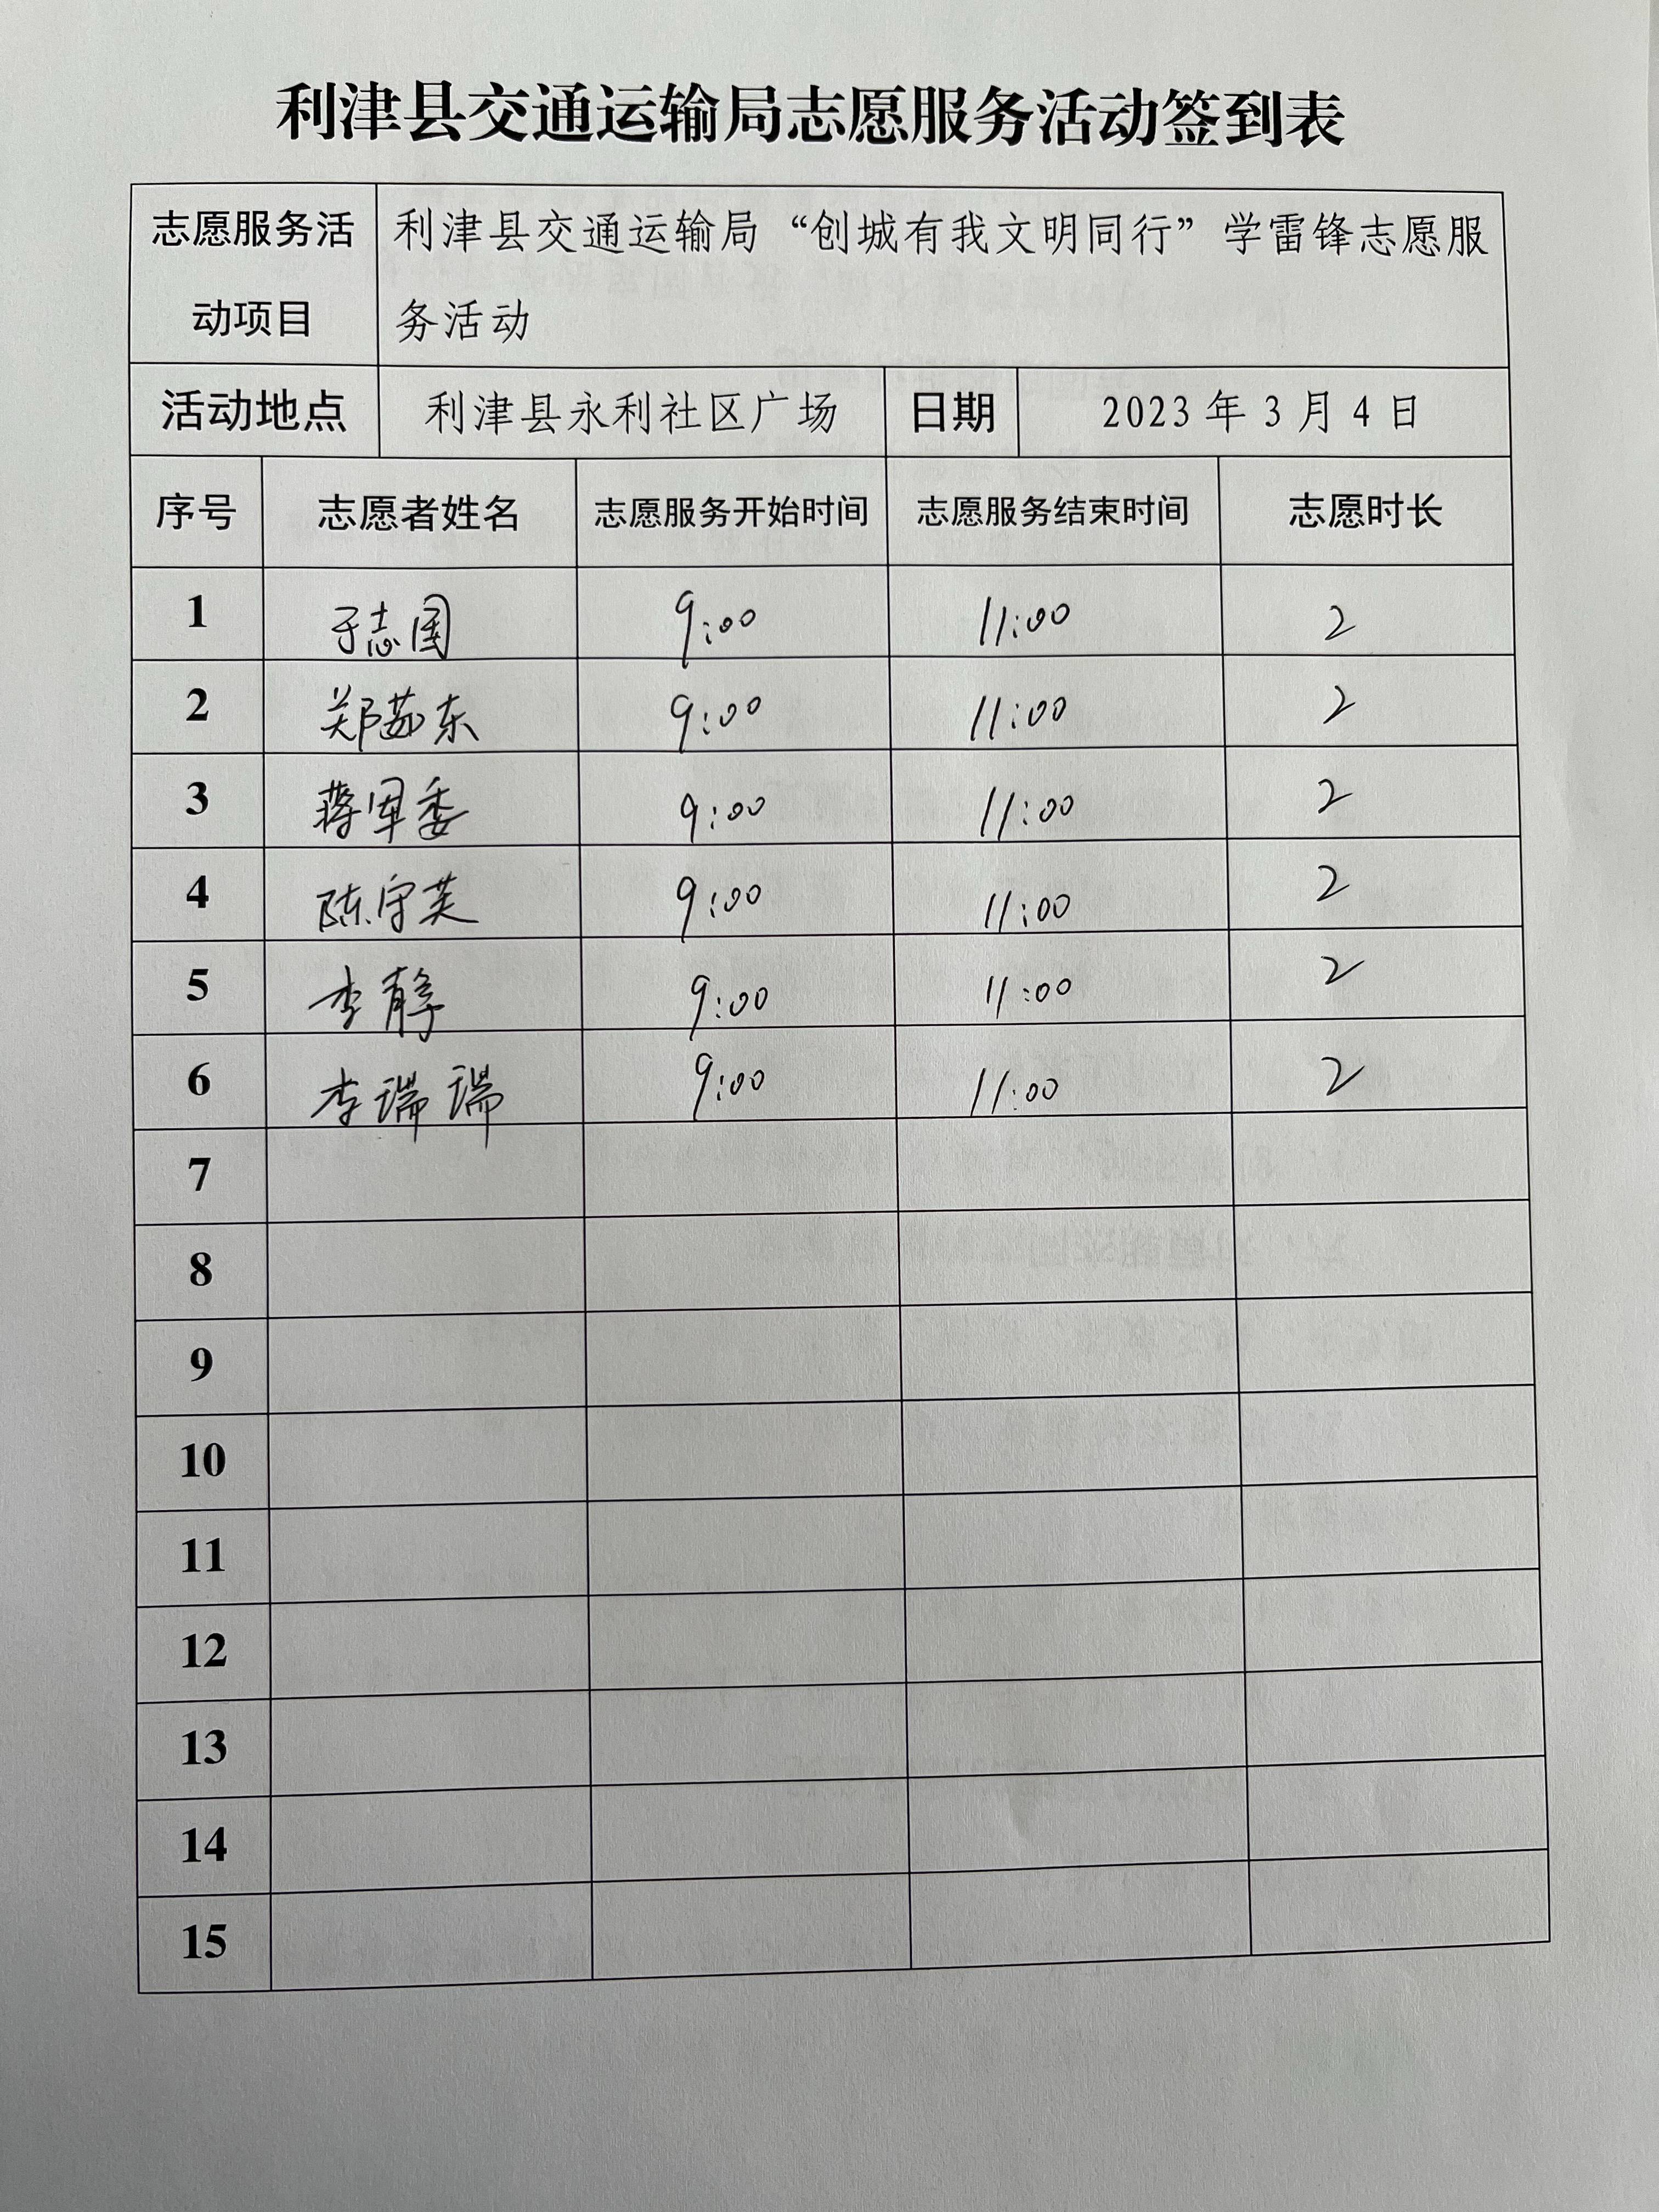 利津县交通运输局志愿服务活动签到表
志愿服务活动项目 利津县交通运输局“创城有我文明同行”学雷锋志愿服
务活动
活动地点 利津县永利社区广场 日期 2023年3月4日
序号 志愿者姓名 志愿服务开始时间 志愿服务结束时间 志愿时长
1 于志国 9:00 11:00 2
2 郑苏东 9:00 11:00 2
3 蒋军委 9:00 11:00 2
4 陈守芙 9:00 11:00 2
5 李静 9:00 11:00 2
6 李瑞瑞 9:00 11:00 2
7
8
9
10
11
12
13
14
15